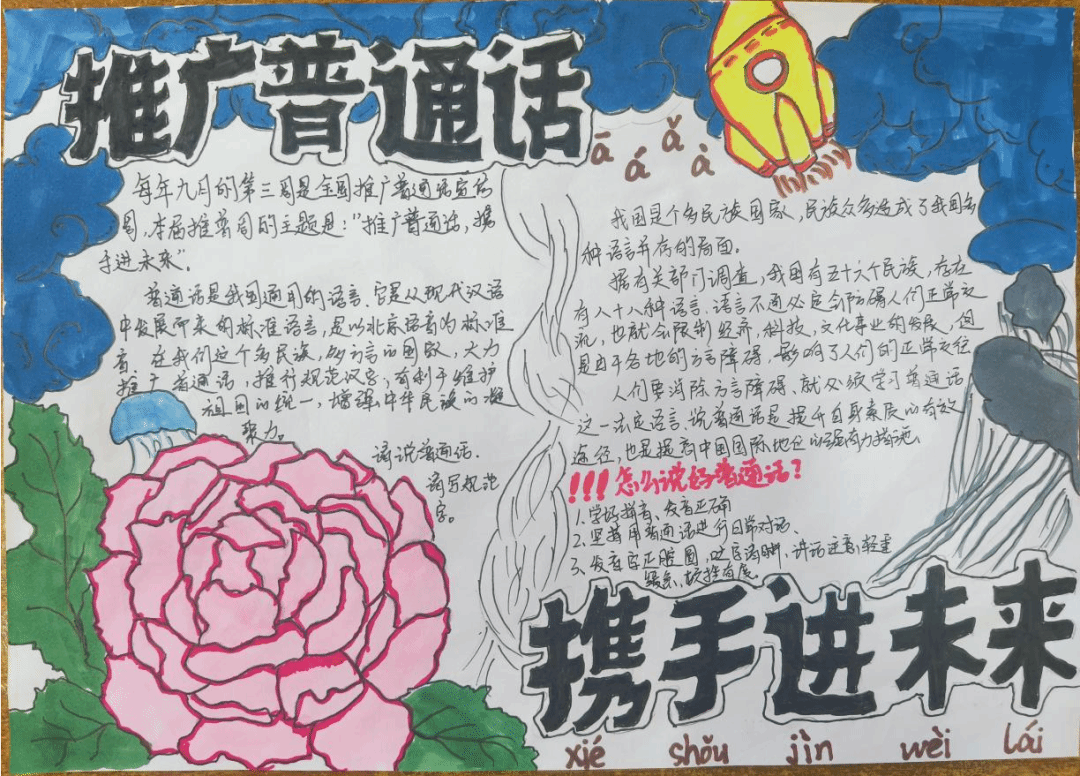 推广普通话
ā á ǎ à
每年九月的第三周是全国推广普通话宣传
周，本届推普周的主题是："推广普通话，携
手进未来"。
普通话是我国通用的语言，它是从现代汉语
中发展而来的标准语言，是以北京语音为标准
音，在我们这个多民族，多方言的国家，大力
推广普通话，推行规范汉字，有利于维护
祖国的统一，增强中华民族的凝
聚力。
请说普通话，
请写规范
字。
我国是个多民族国家，民族众多造成了我国多
种语言并存的局面。
据有关部门调查，我国有五十六个民族，存在
有八十八种语言，语言不通必定会防碍人们正常交
流，也就会限制经济，科技，文化事业的发展，但
是由于各地的方言障碍，影响了人们的正常交往
人们要消除方言障碍、就必须学习普通话
这一法定语言，说普通话是提升自身素质的有效
途径，也是提高中国国际地位的强有力措施。
!!!怎么说好普通话？
1.学好拼音、发音正确
2.坚持用普通话进行日常对话、
3、发音字正腔圆，吐字清晰，讲话注意轻重
缓急、抑扬有度
携手进未来
xié shǒu jìn wèi lái